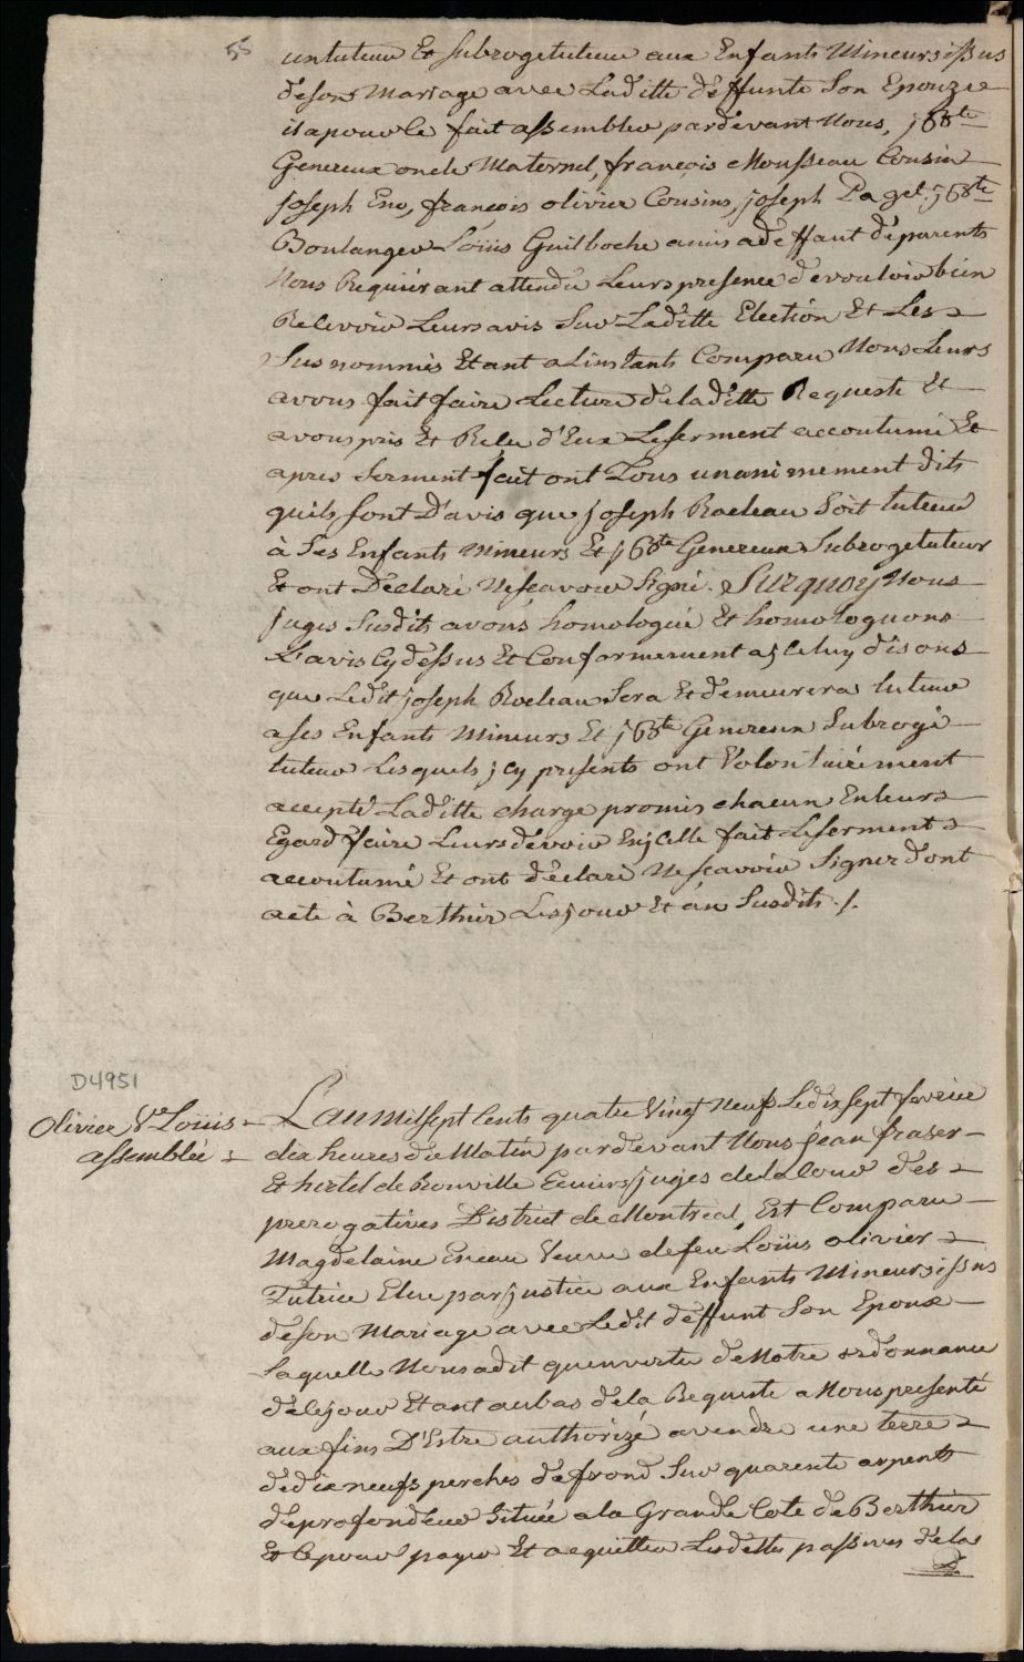 55
un tuteur Et subrogetuteur aux Enfants Mineurs issus
de son Mariage avec Laditte deffunte Son Epouze
il a pour le fait assembler pardevant Nous, j Bte
Genereux oncle Maternel, françois Mousseau Cousin
joseph Eno, françois olivier Cousins, joseph Pagel. j Bte
Boulanger Loüis Guilboche amis adeffaut de parents
Nous Requiérant attendu Leurs presence de vouloir bien
Recevoir Leurs avis Sur Laditte Election Et Les
Sus nommés Etant a Linstants Comparu Nous Leurs
avons fait faire Lecture de laditte Requeste Et
avons pris Et Reçu d'Eux Le serment accoutumé Et
apres Serment fait ont Tous unanimement dits
quils sont D'avis que joseph Rocleau Soit tuteur
à Ses Enfants Mineurs Et j Bte Genereux Subrogetuteur
Et ont Déclaré Ne scavoir Signé. Surquoy Nous
juges Susdits avons homologué Et homologuons
L'avis Cy dessus Et Conformement a jCeluy disons
que Ledit joseph Rocleau Sera Et demeurera tuteur
a ses Enfants Mineurs Et j Bte Genereux Subrogé
tuteur Lesquels jcy presents ont Volontairement
accepté Laditte charge promis chacun En leurs
Egard faire Leurs devoir En jCelle fait Le serment
accoutumé Et ont déclaré Ne scavoir Signer dont
acte à Berthier Les jour Et an Susdits ./.
D4951
Olivier Ve Loüis
assemblée
L'an mil sept Cents quatre Vingt Neuf Le dix sept fevrier
dix heures du Matin pardevant Nous jean fraser
Et hertel de Rouville Ecuiers juges de la Cour des
prerogatives District de Montréal, Est Comparu
Magdelaine Eneau Veuve de feu Loüis olivier
Tutrice Elue par justice aux Enfants Mineurs issus
de son Mariage avec Ledit deffunt Son Epoux
Laquelle Nous a dit quen vertu de Notre ordonnance
de le jour Etant au bas de la Requeste a Nous presenté
aux fins D'Estre authorizé a vendre une terre
de dix neufs perches de frond Sur quarente arpents
de profondeur Située a la Grande Cote de Berthier
Et Ce pour payer Et acquitter Les dettes passives de la